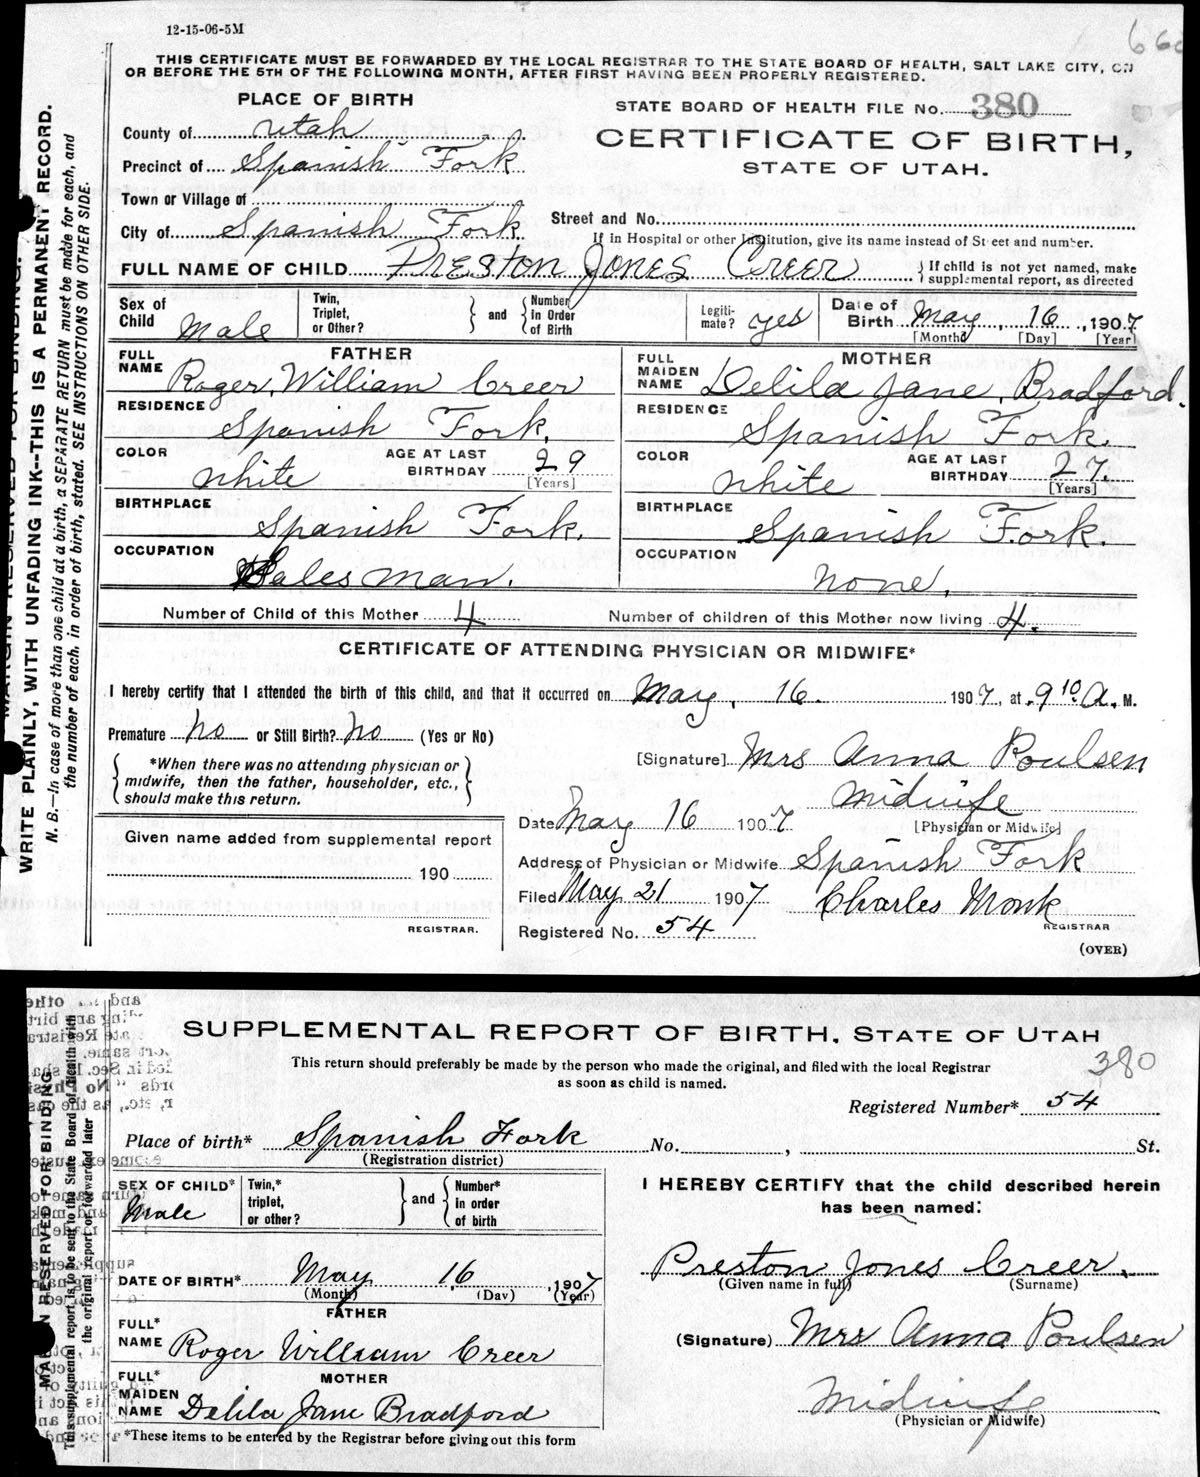 12-15-06-5M
THIS CERTIFICATE MUST BE FORWARDED BY THE LOCAL REGISTRAR TO THE STATE BOARD OF HEALTH, SALT LAKE CITY, ON
OR BEFORE THE 5TH OF THE FOLLOWING MONTH, AFTER FIRST HAVING BEEN PROPERLY REGISTERED.
PLACE OF BIRTH
STATE BOARD OF HEALTH FILE No. 380
County of Utah
CERTIFICATE OF BIRTH,
Precinct of Spanish Fork
STATE OF UTAH.
Town or Village of
City of Spanish Fork.
Street and No.
If in Hospital or other Institution, give its name instead of Street and number.
FULL NAME OF CHILD Preston Jones Creer { If child is not yet named, make
supplemental report, as directed
Sex of Child Male
Twin, Triplet, or Other? } and { Number in Order of Birth
Legiti-mate? yes
Date of Birth May, 16, 1907
[Month] [Day] [Year]
FATHER
FULL NAME Roger William Creer
RESIDENCE Spanish Fork.
COLOR White
AGE AT LAST BIRTHDAY 29
[Years]
BIRTHPLACE Spanish Fork.
OCCUPATION Sales man.
MOTHER
FULL MAIDEN NAME Delila Jane Bradford.
RESIDENCE Spanish Fork.
COLOR White
AGE AT LAST BIRTHDAY 27.
[Years]
BIRTHPLACE Spanish Fork.
OCCUPATION none.
Number of Child of this Mother 4
Number of children of this Mother now living 4.
CERTIFICATE OF ATTENDING PHYSICIAN OR MIDWIFE*
I hereby certify that I attended the birth of this child, and that it occurred on May, 16. 1907, at 9 10 A. M.
Premature no or Still Birth? no (Yes or No)
*When there was no attending physician or
midwife, then the father, householder, etc.,
should make this return.
[Signature] Mrs Anna Poulsen
Midwife
[Physician or Midwife]
Date May 16 1907
Given name added from supplemental report
190
REGISTRAR.
Address of Physician or Midwife Spanish Fork
Filed May 21 1907
Charles Monk
REGISTRAR
Registered No. 54
(OVER)
MARGIN RESERVED FOR BINDING.
WRITE PLAINLY, WITH UNFADING INK--THIS IS A PERMANENT RECORD.
N. B.—In case of more than one child at a birth, a SEPARATE RETURN must be made for each, and
the number of each, in order of birth, stated. SEE INSTRUCTIONS ON OTHER SIDE.
SUPPLEMENTAL REPORT OF BIRTH, STATE OF UTAH
This return should preferably be made by the person who made the original, and filed with the local Registrar
as soon as child is named.
380
Registered Number* 54
Place of birth* Spanish Fork No. , St.
(Registration district)
SEX OF CHILD* Male
Twin,* triplet, or other? } and { Number* in order of birth
I HEREBY CERTIFY that the child described herein
has been named:
DATE OF BIRTH* May 16, 1907
(Month) (Day) (Year)
Preston Jones Creer.
(Given name in full) (Surname)
FATHER
FULL* NAME Roger William Creer
(Signature) Mrs Anna Poulsen
MOTHER
FULL* MAIDEN NAME Delila Jane Bradford
Midwife
(Physician or Midwife)
*These items to be entered by the Registrar before giving out this form
RESERVED FOR BINDING
This supplemental report is to be sent to the State Board of Health with
the original report or forwarded later